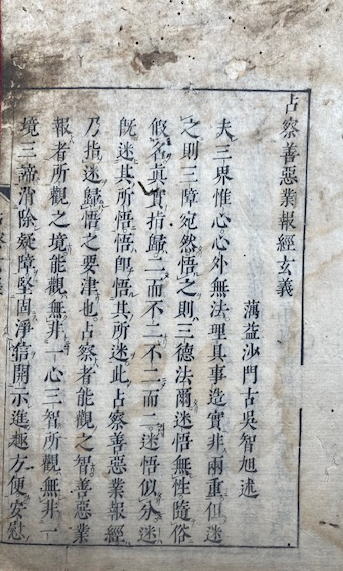 占察善惡業報經玄義
蕅益沙門古吳智旭述
夫三界惟心心外無法理具事造實非兩重但迷
之則三障宛然悟之則三德法爾迷悟無性隨俗
假名眞實指歸二而不二不二而二迷悟似分迷
既迷其所悟悟卽悟其所迷此占察善惡業報經
乃指迷歸悟之要津也占察者能觀之智善惡業
報者所觀之境能觀無非一心三智所觀無非一
境三諦消除疑障堅固淨信開示進趣方便安慰